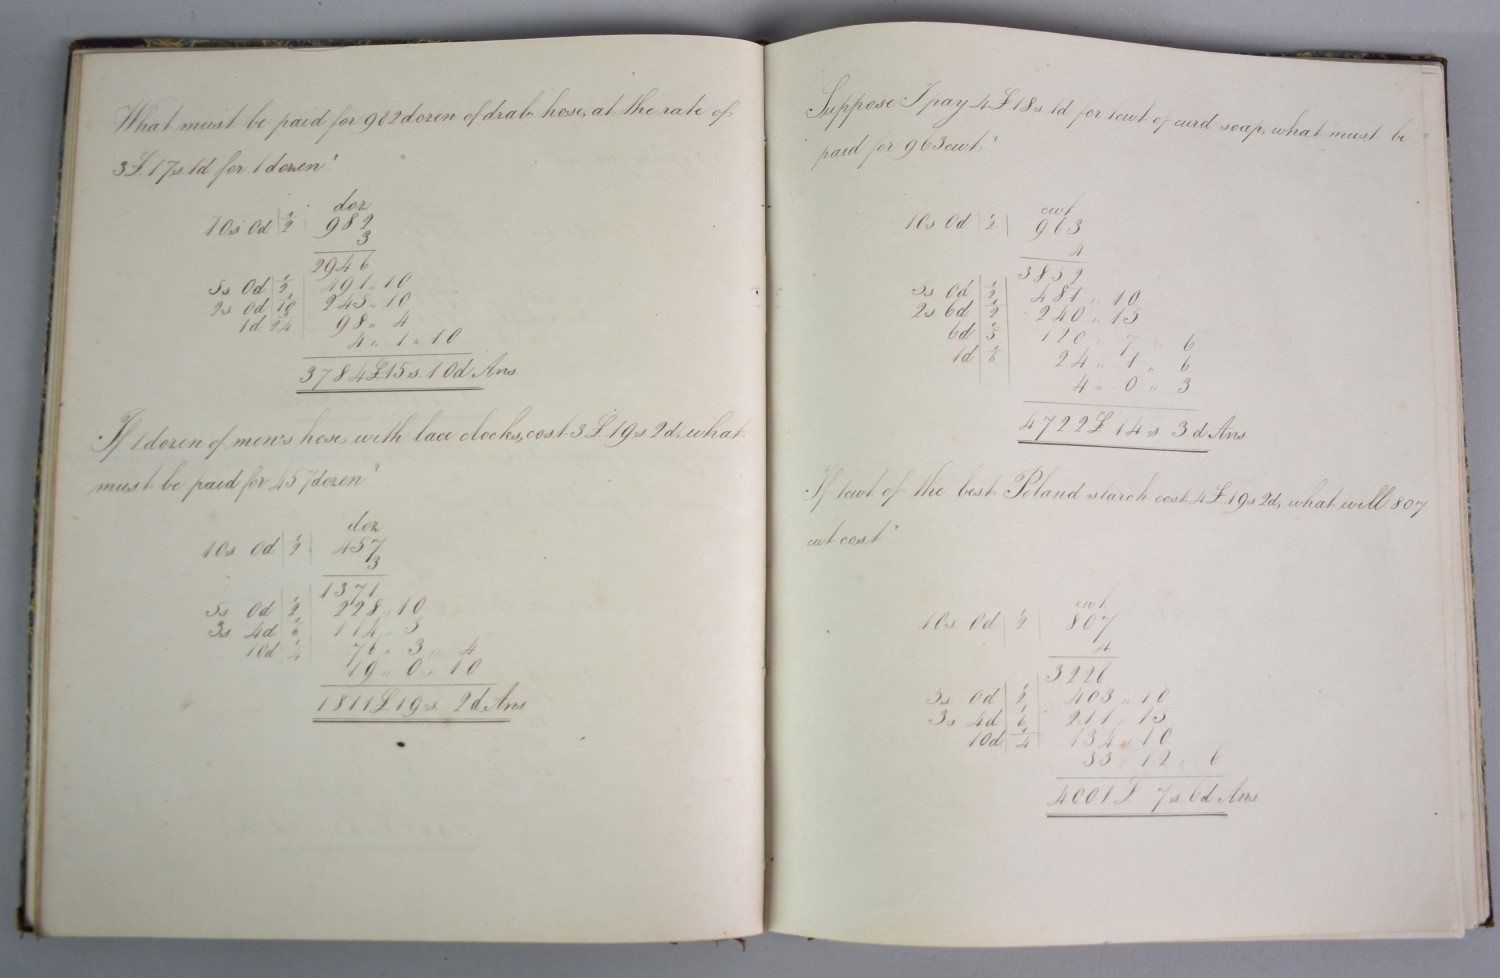 What must be paid for 982 dozen of drab hose, at the rate of
3£ 17s 1d for 1 dozen?
doz
10s 0d | 1/2 | 982
3
2946
5s 0d | 1/2 | 491 " 10
2s 0d | 1/10 | 245 " 10
1d 24 98 " 4
4 " 1 " 10
3784£ 15s 10d Ans
If 1 dozen of men's hose, with lace clocks, cost 3£ 19s 2d, what
must be paid for 457 dozen?
doz
10s 0d | 1/2 | 457
3
1371
5s 0d | 1/2 | 228 " 10
3s 4d | 1/6 | 114 " 5
10d | 1/4 | 76 " 3 " 4
19 " 0 " 10
1811£ 19s 2d Ans
Suppose I pay 4£ 18s 1d for 1cwt of curd soap, what must be
paid for 963cwt?
cwt
10s 0d | 1/2 | 963
4
3852
5s 0d | 1/2 | 481 " 10
2s 6d | 1/2 | 240 " 15
6d | 1/5 | 120 " 7 " 6
1d | 1/6 | 24 " 1 " 6
4 " 0 " 3
4722£ 14s 3d Ans
If 1cwt of the best Poland starch cost 4£ 19s 2d, what will 807
cwt cost?
cwt
10s 0d | 1/2 | 807
4
3228
5s 0d | 1/2 | 403 " 10
3s 4d | 1/6 | 211 " 15
10d | 1/4 | 134 " 10
33 " 12 " 6
4001£ 7s 6d Ans